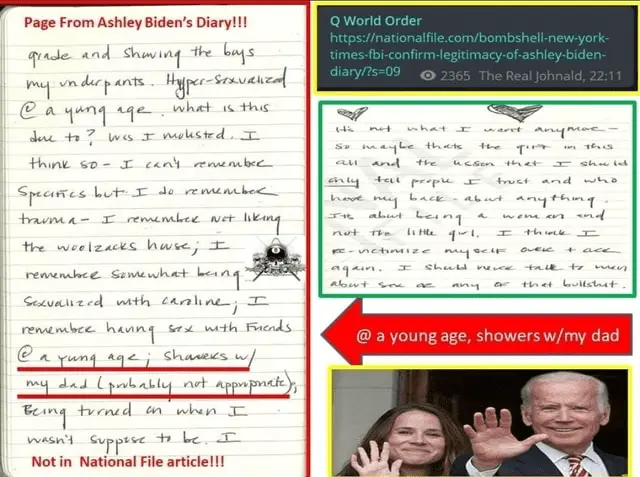 Page From Ashley Biden's Diary!!!
grade and showing the boys
my underpants. Hyper-Sexualized
@ a yung age. what is this
due to? Was I molested. I
think so - I can't remember
Specifics but I do remember
trauma - I remember not liking
the woolzacks house; I
remember somewhat being
Sexualized with caroline; I
remember having sex with Friends
@ a yung age; Showers w/
my dad (probably not appropriate);
Being turned on when I
wasn't suppose to be. I
Not in National File article!!!
Q World Order
https://nationalfile.com/bombshell-new-york-
times-fbi-confirm-legitimacy-of-ashley-biden-
diary/?s=09
2365 The Real Johnald, 22:11
It's not what I want anymore -
so maybe thats the gift in this
all and the lesson that I should
only tell people I trust and who
have my back about anything.
Its about being a woman and
not the little girl. I think I
re-victimize myself over + over
again. I should never talk to men
about sex or any of that bullshit.
@ a young age, showers w/my dad